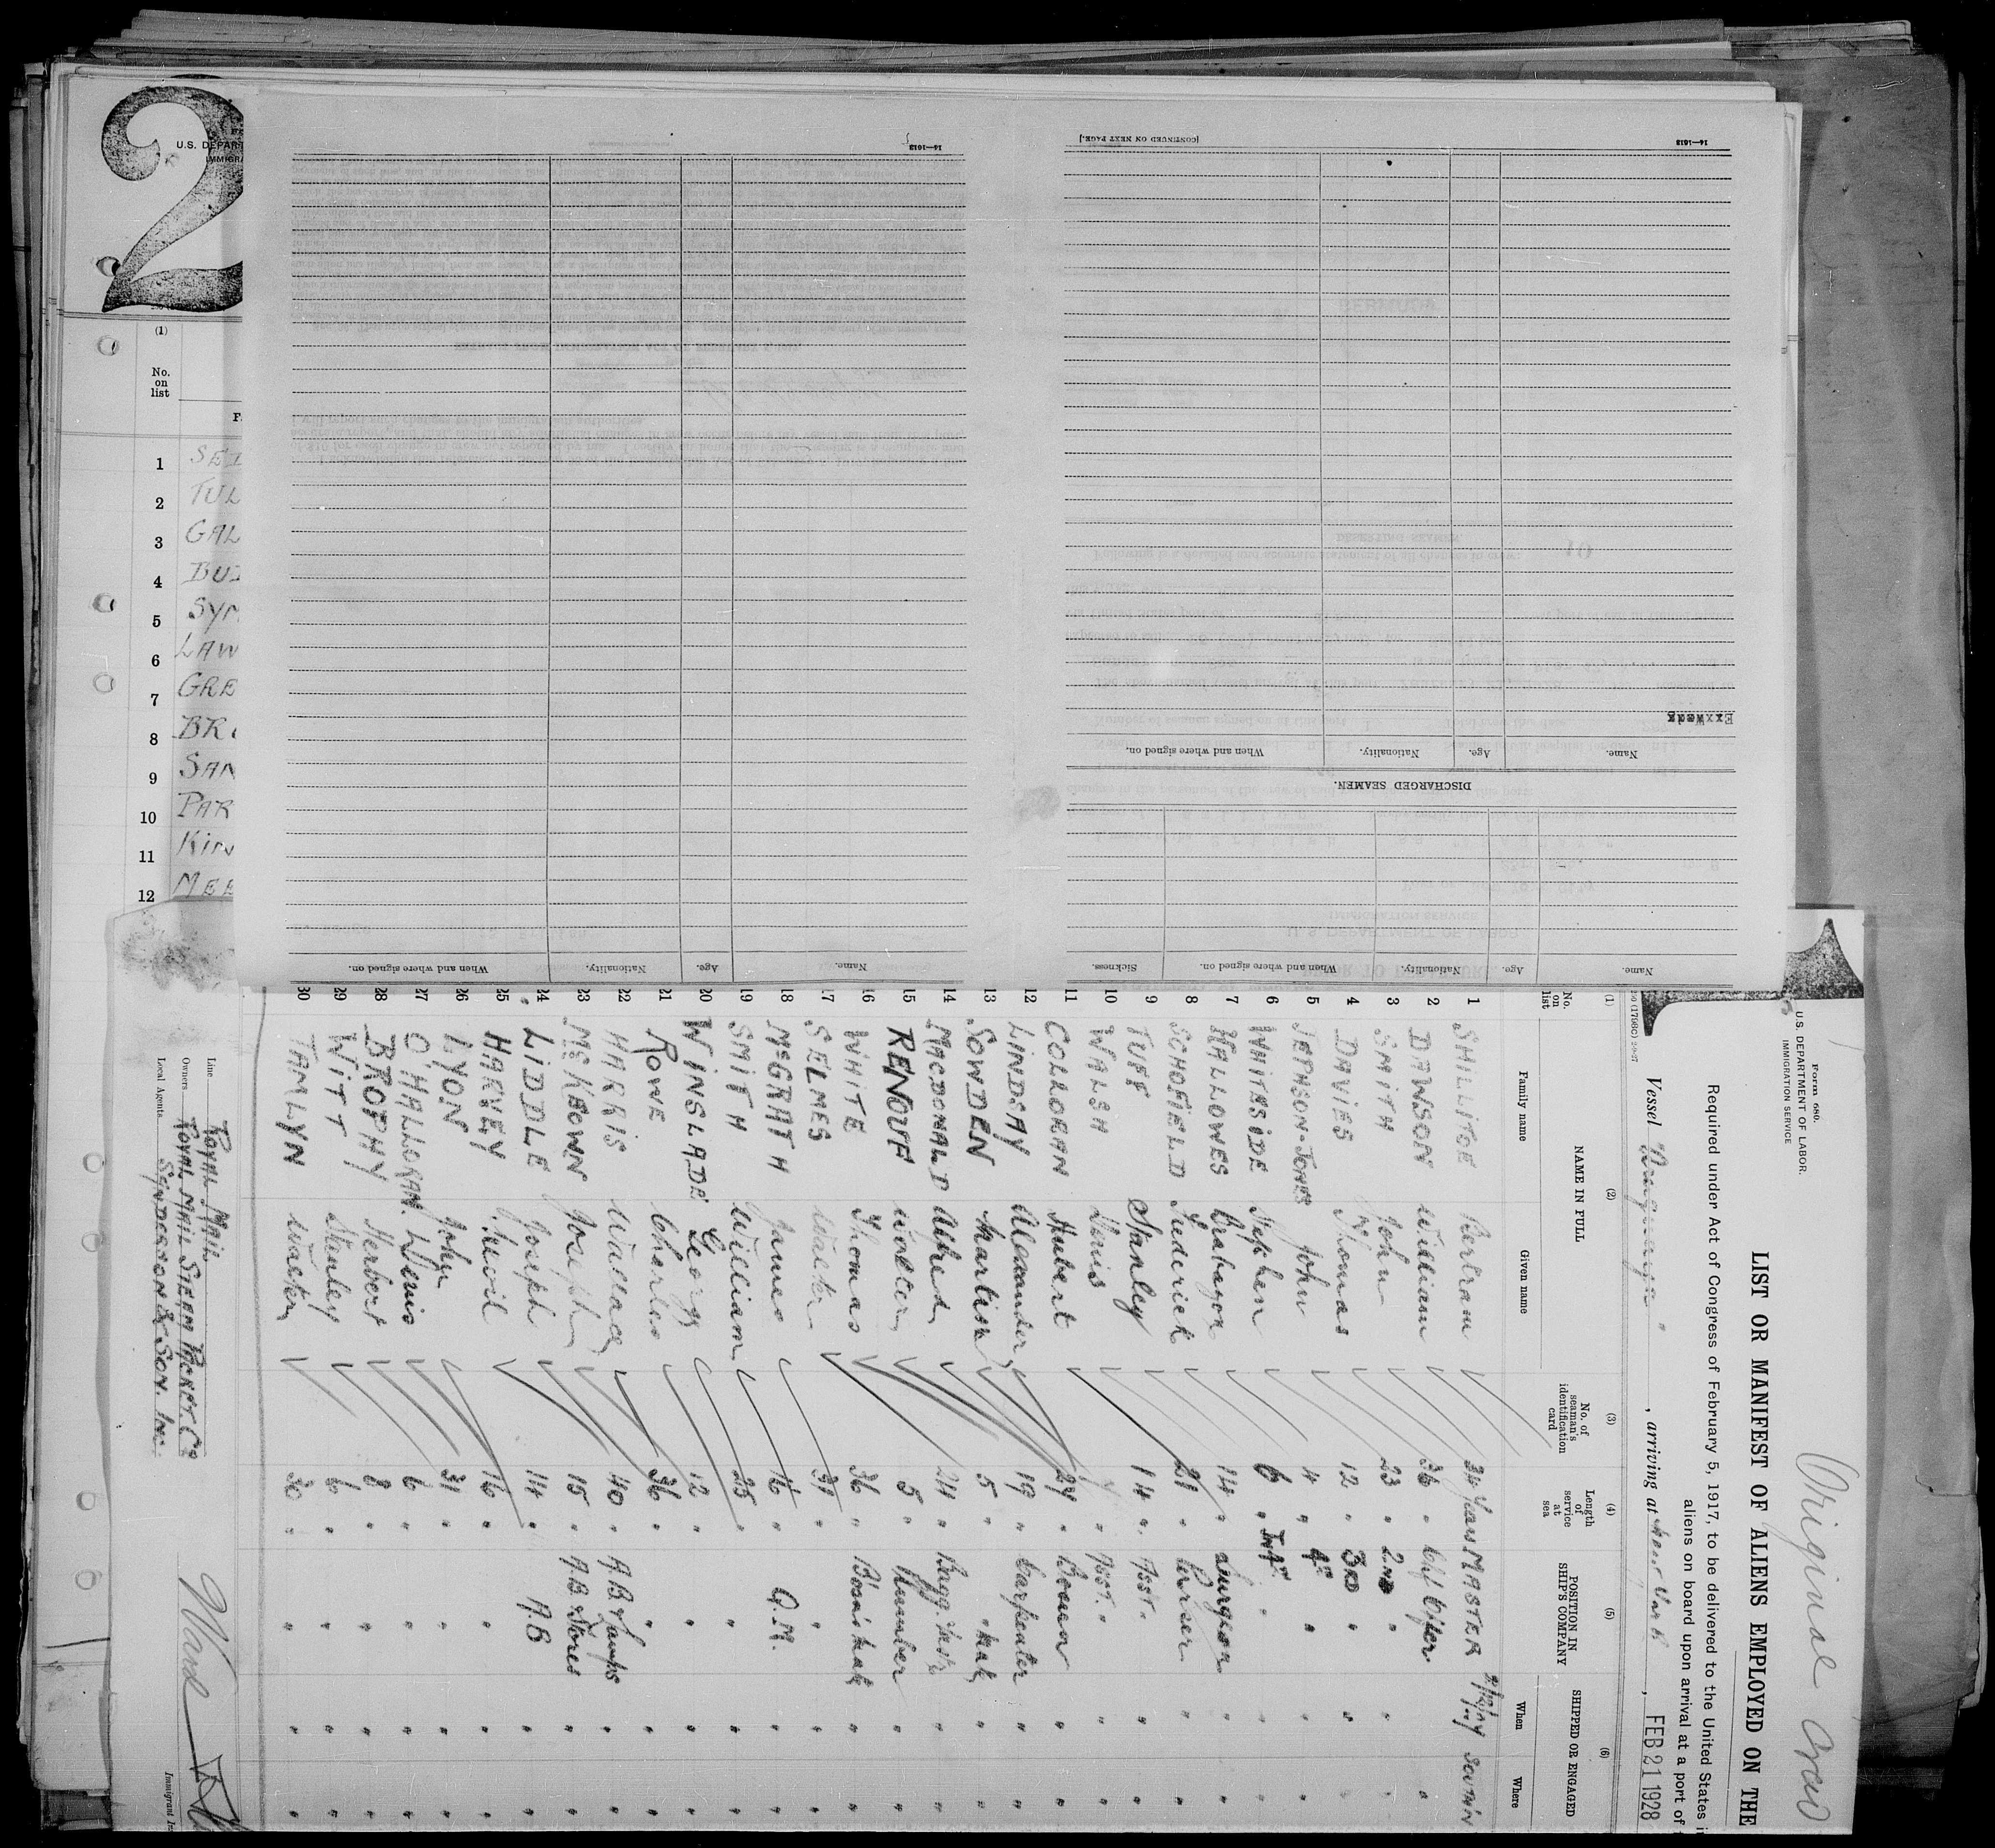 2
U.S. DEPAR
IMMIGRA
(1)
No. on list
F
1 SEI
2 TUL
3 GAL
4 BUI
5 SYM
6 LAW
7 GRE
8 BR
9 SAN
10 PAR
11 Kin
12 MEE
14-1613
14-1613
[CONTINUED ON NEXT PAGE.]
ExxWeda
Name. Age. Nationality. When and where signed on.
DISCHARGED SEAMEN.
Name. Age. Nationality. When and where signed on. Sickness.
Name. Age. Nationality. When and where signed on.
Original Crew
Form 680.
U.S. DEPARTMENT OF LABOR.
IMMIGRATION SERVICE
LIST OR MANIFEST OF ALIENS EMPLOYED ON THE
Required under Act of Congress of February 5, 1917, to be delivered to the United States i
aliens on board upon arrival at a port of
Vessel , arriving at New York , FEB 21 1928
(1) (2) (3) (4) (5) (6)
No. on list NAME IN FULL No. of seaman's identification card Length of service at sea POSITION IN SHIP'S COMPANY SHIPPED OR ENGAGED
Family name Given name When Where
1 SHILLITOE Bertram 34 Years MASTER 2/12/27 SOTON
2 DAWSON William 36 " Chf Offcer. " "
3 SMITH John 23 " 2ND " " "
4 DAVIES Thomas 12 " 3RD " " "
5 JEPHSON-JONES John 4 " 4th " " "
6 WHITESIDE Stephen 6 " " " "
7 HALLOWES Brabazon 14 " Surgeon " "
8 SCHOFIELD Frederick 21 " Purser " "
9 TUFF Stanley 14 " Asst. " " "
10 WALSH Denis " Asst. " " "
11 COLLORAN Hubert 24 " Bosun " "
12 LINDSAY Alexander 19 " Carpenter " "
13 SOWDEN Martin 5 " " Mate " "
14 MACDONALD Alfred 24 " Bagg. Mstr " "
15 RENOUF Walter 5 " Plumber " "
16 WHITE Thomas 36 " Bosn's Mate " "
17 SELMES Walter 37 " " " "
18 McGRATH James 16 " Q.M. " "
19 SMITH William 25 " " " "
20 WINSLADE George 12 " " " "
21 ROWE Charles 36 " " " "
22 HARRIS Wallace 40 " A.B & Lamps " "
23 McKEOWN Joseph 15 " A.B & Stores " "
24 LIDDLE Joseph 14 " A.B " "
25 HARVEY 16 " " " "
26 LYON John 31 " " " "
27 O'HALLORAN Denis 6 " " " "
28 BROPHY Herbert 8 " " " "
29 WITT Stanley 6 " " " "
30 TAMLYN Walter 30 " " " "
Line Royal Mail.
Owners Royal Mail Steam Packet Co
Local Agents Sanderson & Son. Inc.
Ward
Immigrant In